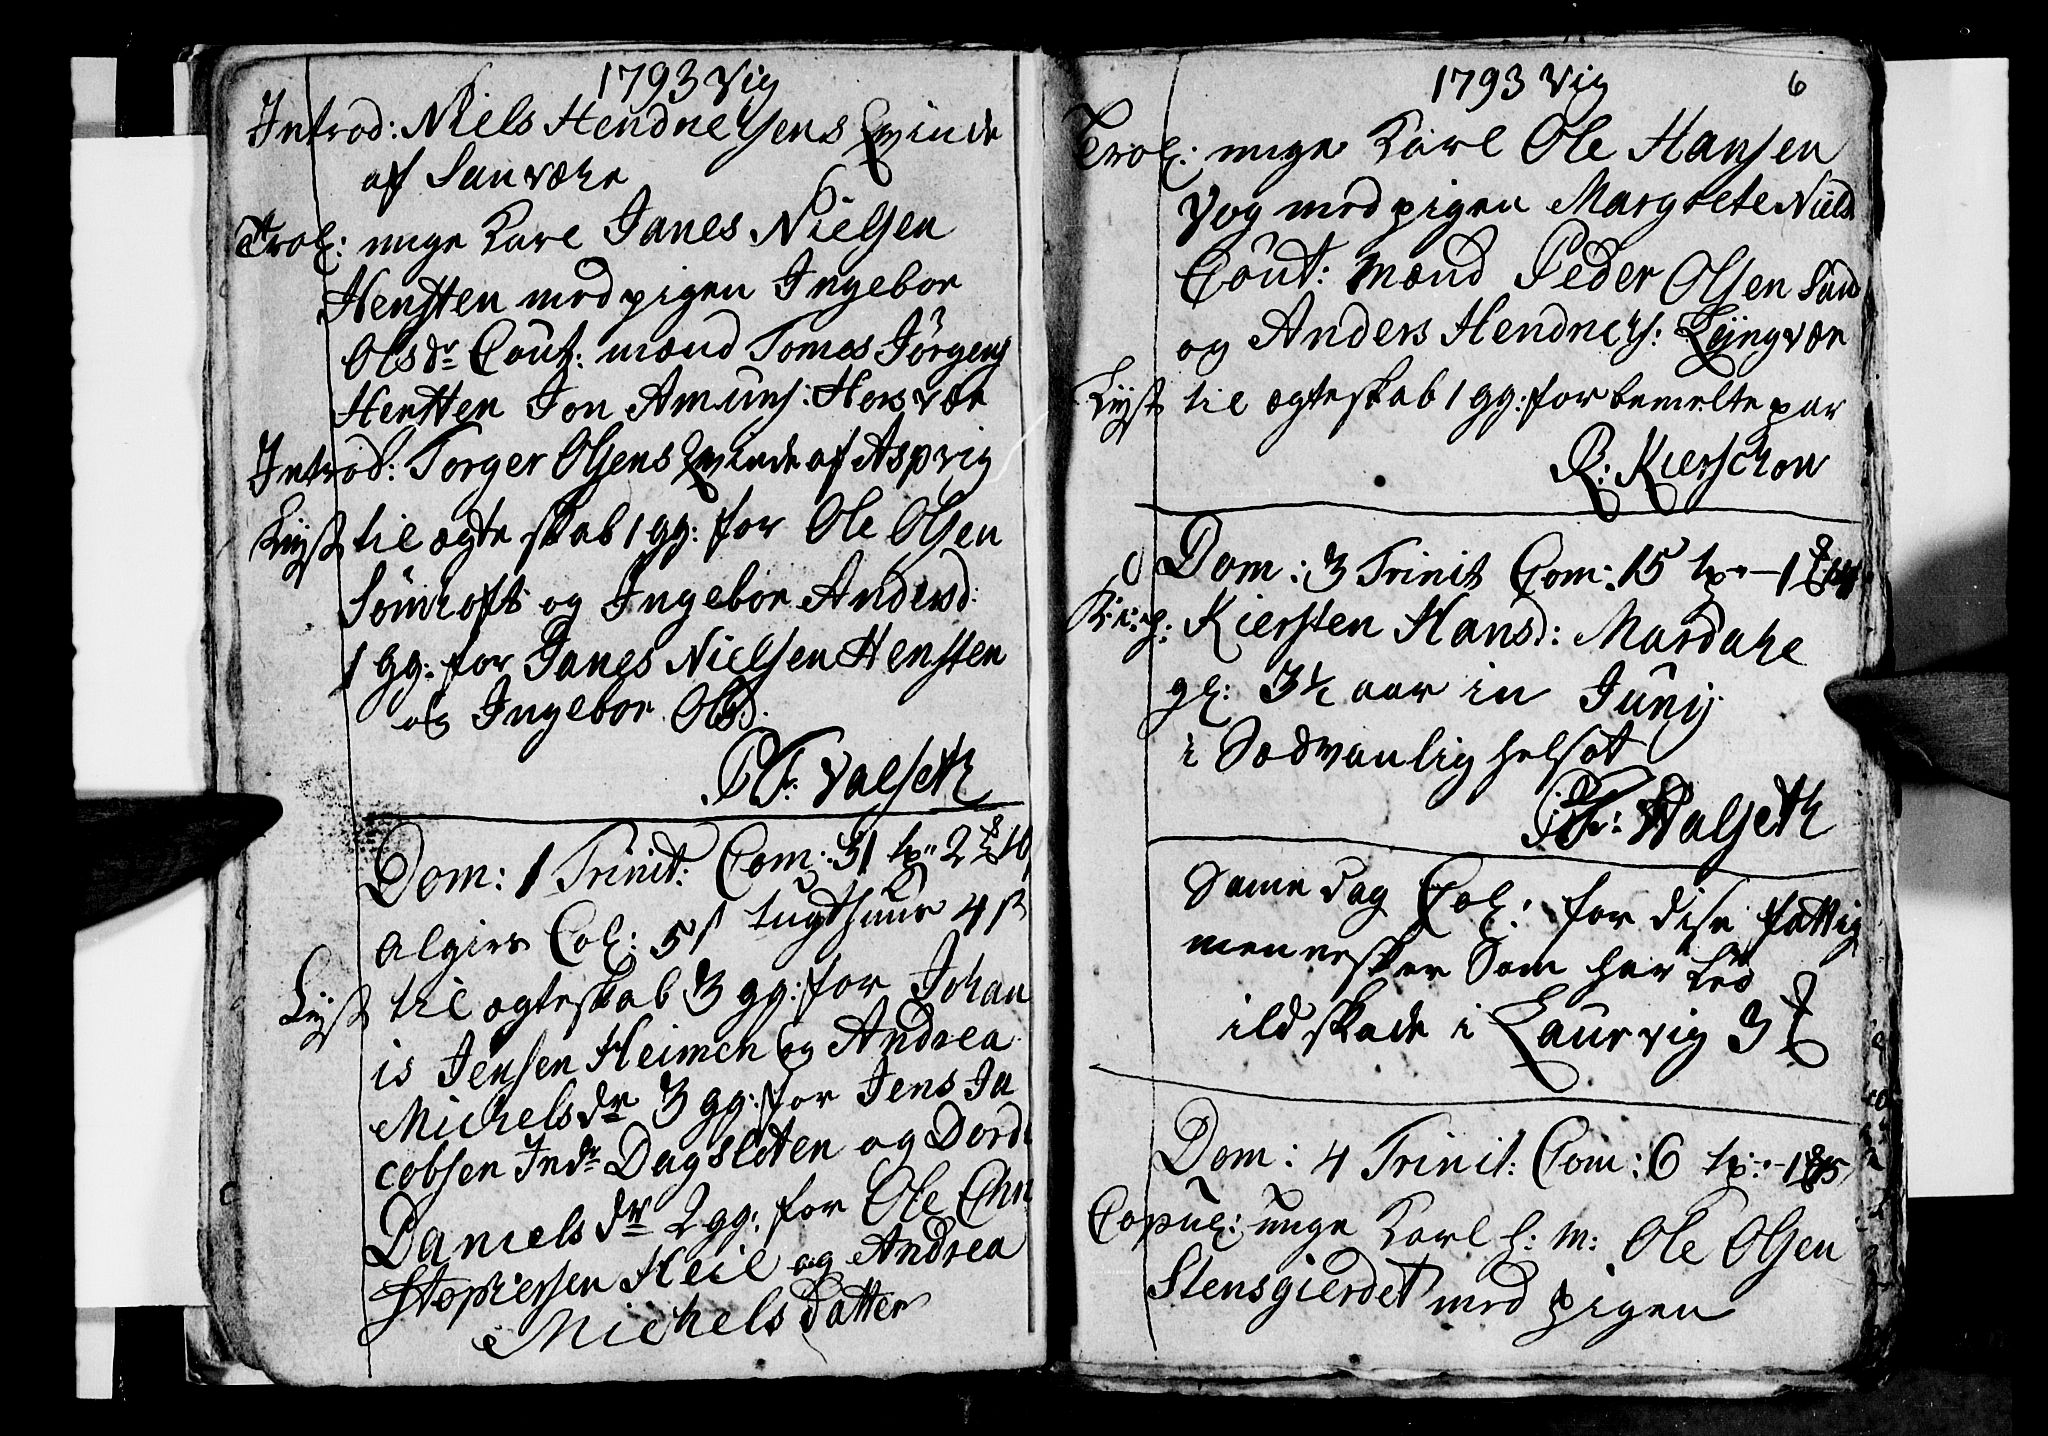 1793 Vig
Introd: Niels Hendrichsens Qvinde
af Sanvær
Trol: unge Karl Janes Nielsen
Hensten med pigen Ingebor
Olsdr Cout: mænd Tomes Jörgens
Hensten Jon Amuns: Hersvær
Introd: Torger Olsens Qvinde af Aspvig
Lyst til ægteskab 1 gg: for Ole Olsen
Sömroft og Ingebor Andersd:
1 gg: for Janes Nielsen Hensten
og Ingebor Olsd.
Valseth
Dom: 1 Trinit: Com: 31 tp: 2
algier Col: 5 tugthuus 4 ß
Lyst til ægteskab 3 gg: for Johan
is Jensen Heimen og Andrea
Michelsdr 3 gg: for Jens Ja
cobsen Indr Dagsloten og Dord
Danielsdr 2 gg: for Ole Chri
stophersen Heil og Andrea
Michelsdatter
1793 Vig 6
Trol: unge Karl Ole Hansen
Vog med pigen Margrete Niels
Cout: mænd Peder Olsen Sund
og Anders Hendrichs: Lyngvær
Lyst til ægteskab 1 gg: for bemelte par
R: Kierschow
Dom: 3 Trinit Com: 15 tp: 1
Kiersten Hansd: Mardahe
gl: 3½ aar in Junij
i Sædvanlig helsot
Walseth
Same dag Col: for dise fattig
mennesker Som har Led
ildskade i Laurvig 3
Dom: 4 Trinit: Com: 6 tp: 1
Copul: unge Karl h: m: Ole Olsen
Stensgierdet med pigen